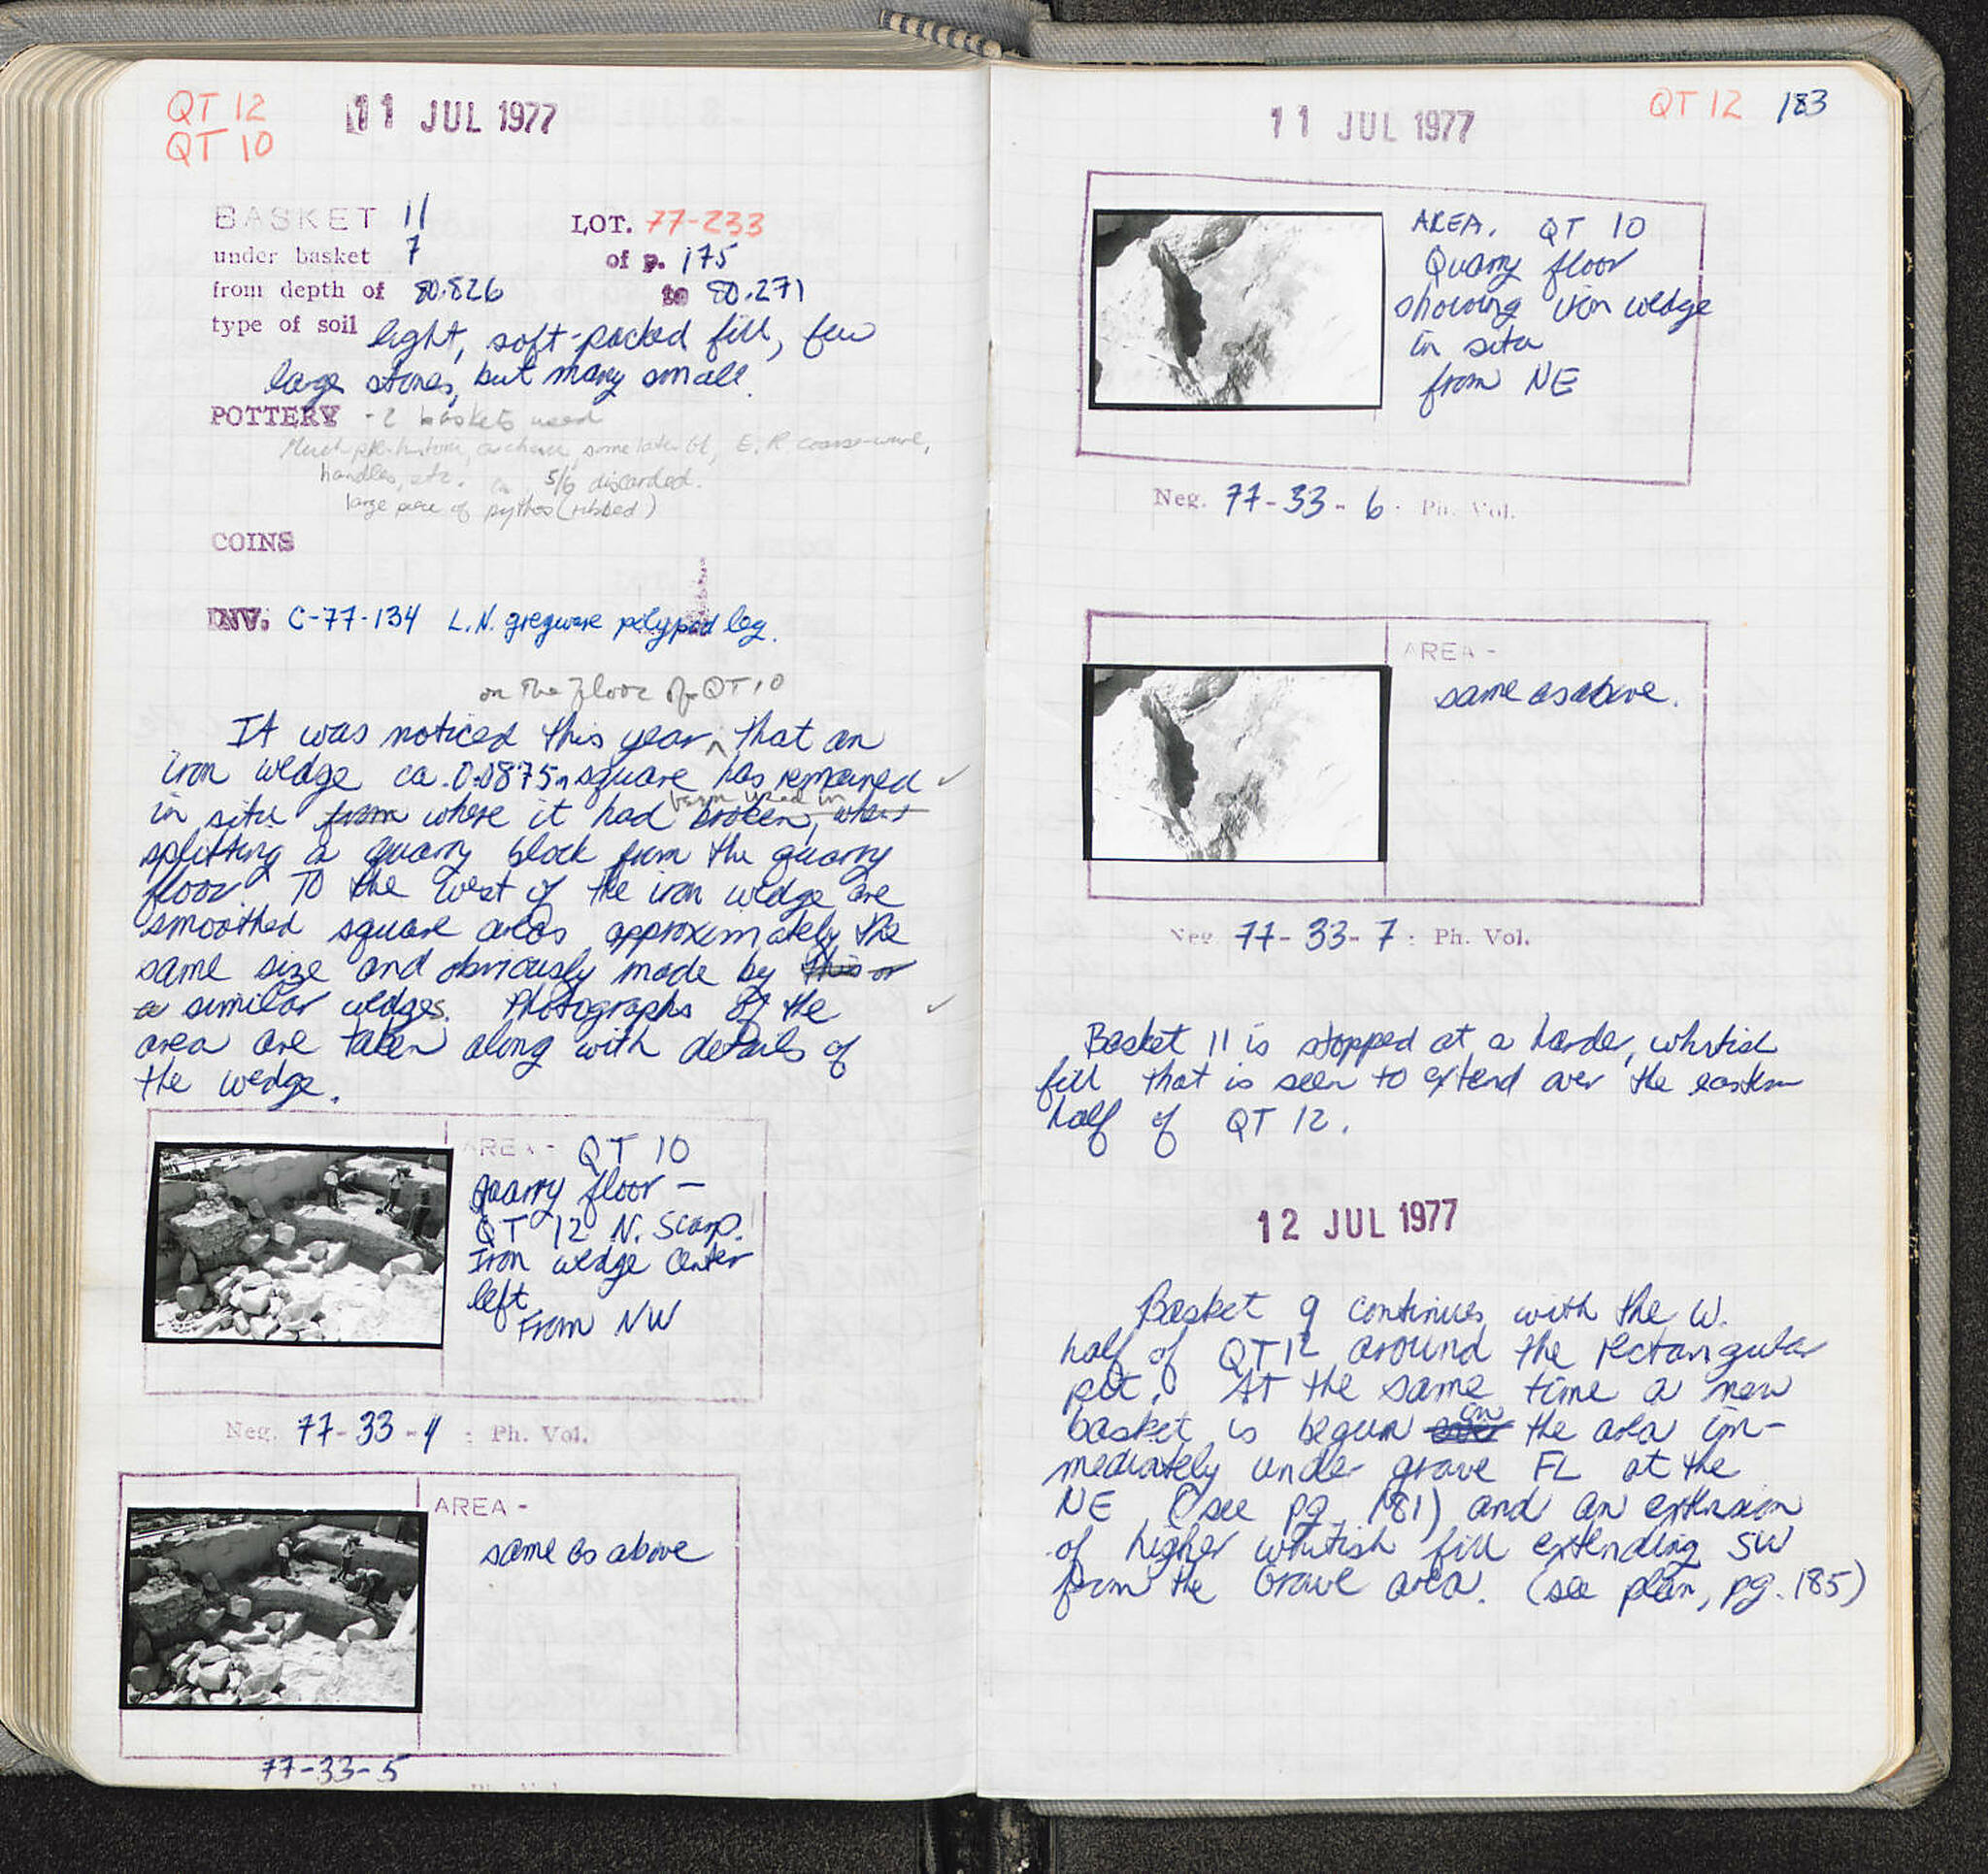 QT 12
QT 10
11 JUL 1977
BASKET 11
LOT. 77-233
under basket 7
of p. 175
from depth of 80.826
to 80.271
type of soil light, soft-packed fill, few
large stones, but many small.
POTTERY - 2 baskets used
Much pre-historic, archaic, some later Gl, E.R coarse-ware,
handles, etc. 5/6 discarded.
large piece of pythos (ribbed)
COINS
INV. C-77-134 L.N. greyware polypod leg.
on the floor of QT 10
It was noticed this year ^ that an
iron wedge ca. 0.0875m square has remained ✓
been used in
in situ from where it had broken, when
splitting a quarry block from the quarry
floor. To the west of the iron wedge are
smoothed square areas approximately the
same size and obviously made by this or
a similar wedges. Photographs of the ✓
area are taken along with details of
the wedge.
AREA - QT 10
Quarry floor -
QT 12 N. Scarp.
Iron wedge center
left
From NW
Neg. 77-33-4 : Ph. Vol.
AREA -
same as above
77-33-5
QT 12 183
11 JUL 1977
AREA. QT 10
Quarry floor
showing iron wedge
in situ
from NE
Neg. 77-33-6 . Ph. Vol.
AREA -
same as above.
Neg. 77-33-7 : Ph. Vol.
Basket 11 is stopped at a harder, whitish
fill that is seen to extend over the eastern
half of QT 12.
12 JUL 1977
Basket 9 continues with the W.
half of QT 12 around the rectangular
pit. At the same time a new
in
basket is begun over the area im-
mediately under grave FL at the
NE (see pg. 181) and an extension
of higher whitish fill extending SW
from the Grave area. (see plan, pg. 185)